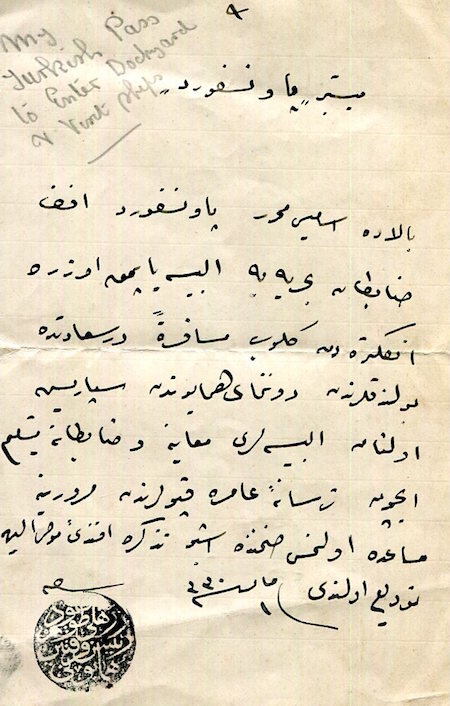 My
Turkish Pass
to Enter Dockyard
& Visit ships
میستر „پاونسفورد„
بالاده اسمی محرر پاونسفورد افندی
ضابطان بحریه یه البسه یاپمق اوزره
انکلتره دن کلوب مسافرةً درسعادتده
بولندقلرندن دوننمای همایوندن سپاریش
اولنان البسه لری معاینه و ضابطانه تسلیم
ایچون ترسانهٔ عامره قپولرندن مرورینه
مساعده اولنمسی ضمننده اشبو تذکره افندئ مومی الیهه
تودیع اولندی ١ مارت ٣٣٠